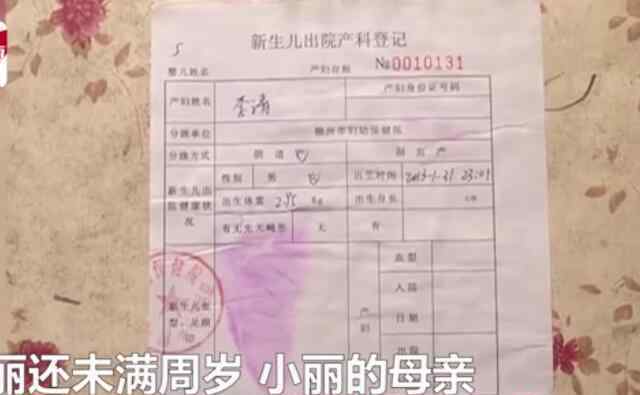 5
新生儿出院产科登记
婴儿姓名 产妇存根 №0010131
产妇姓名 李清 产妇身份证号码
分娩单位 柳州市妇幼保健院
分娩方式 阴道 剖宫产
性别 男 出生时间
新生儿出院健康状况 出生体重 Kg 出生身长 cm
有无先天畸形 无 有
新生儿血型、足跟印 产妇 血型
入院日期
出院
丽还未满周岁 小丽的母亲